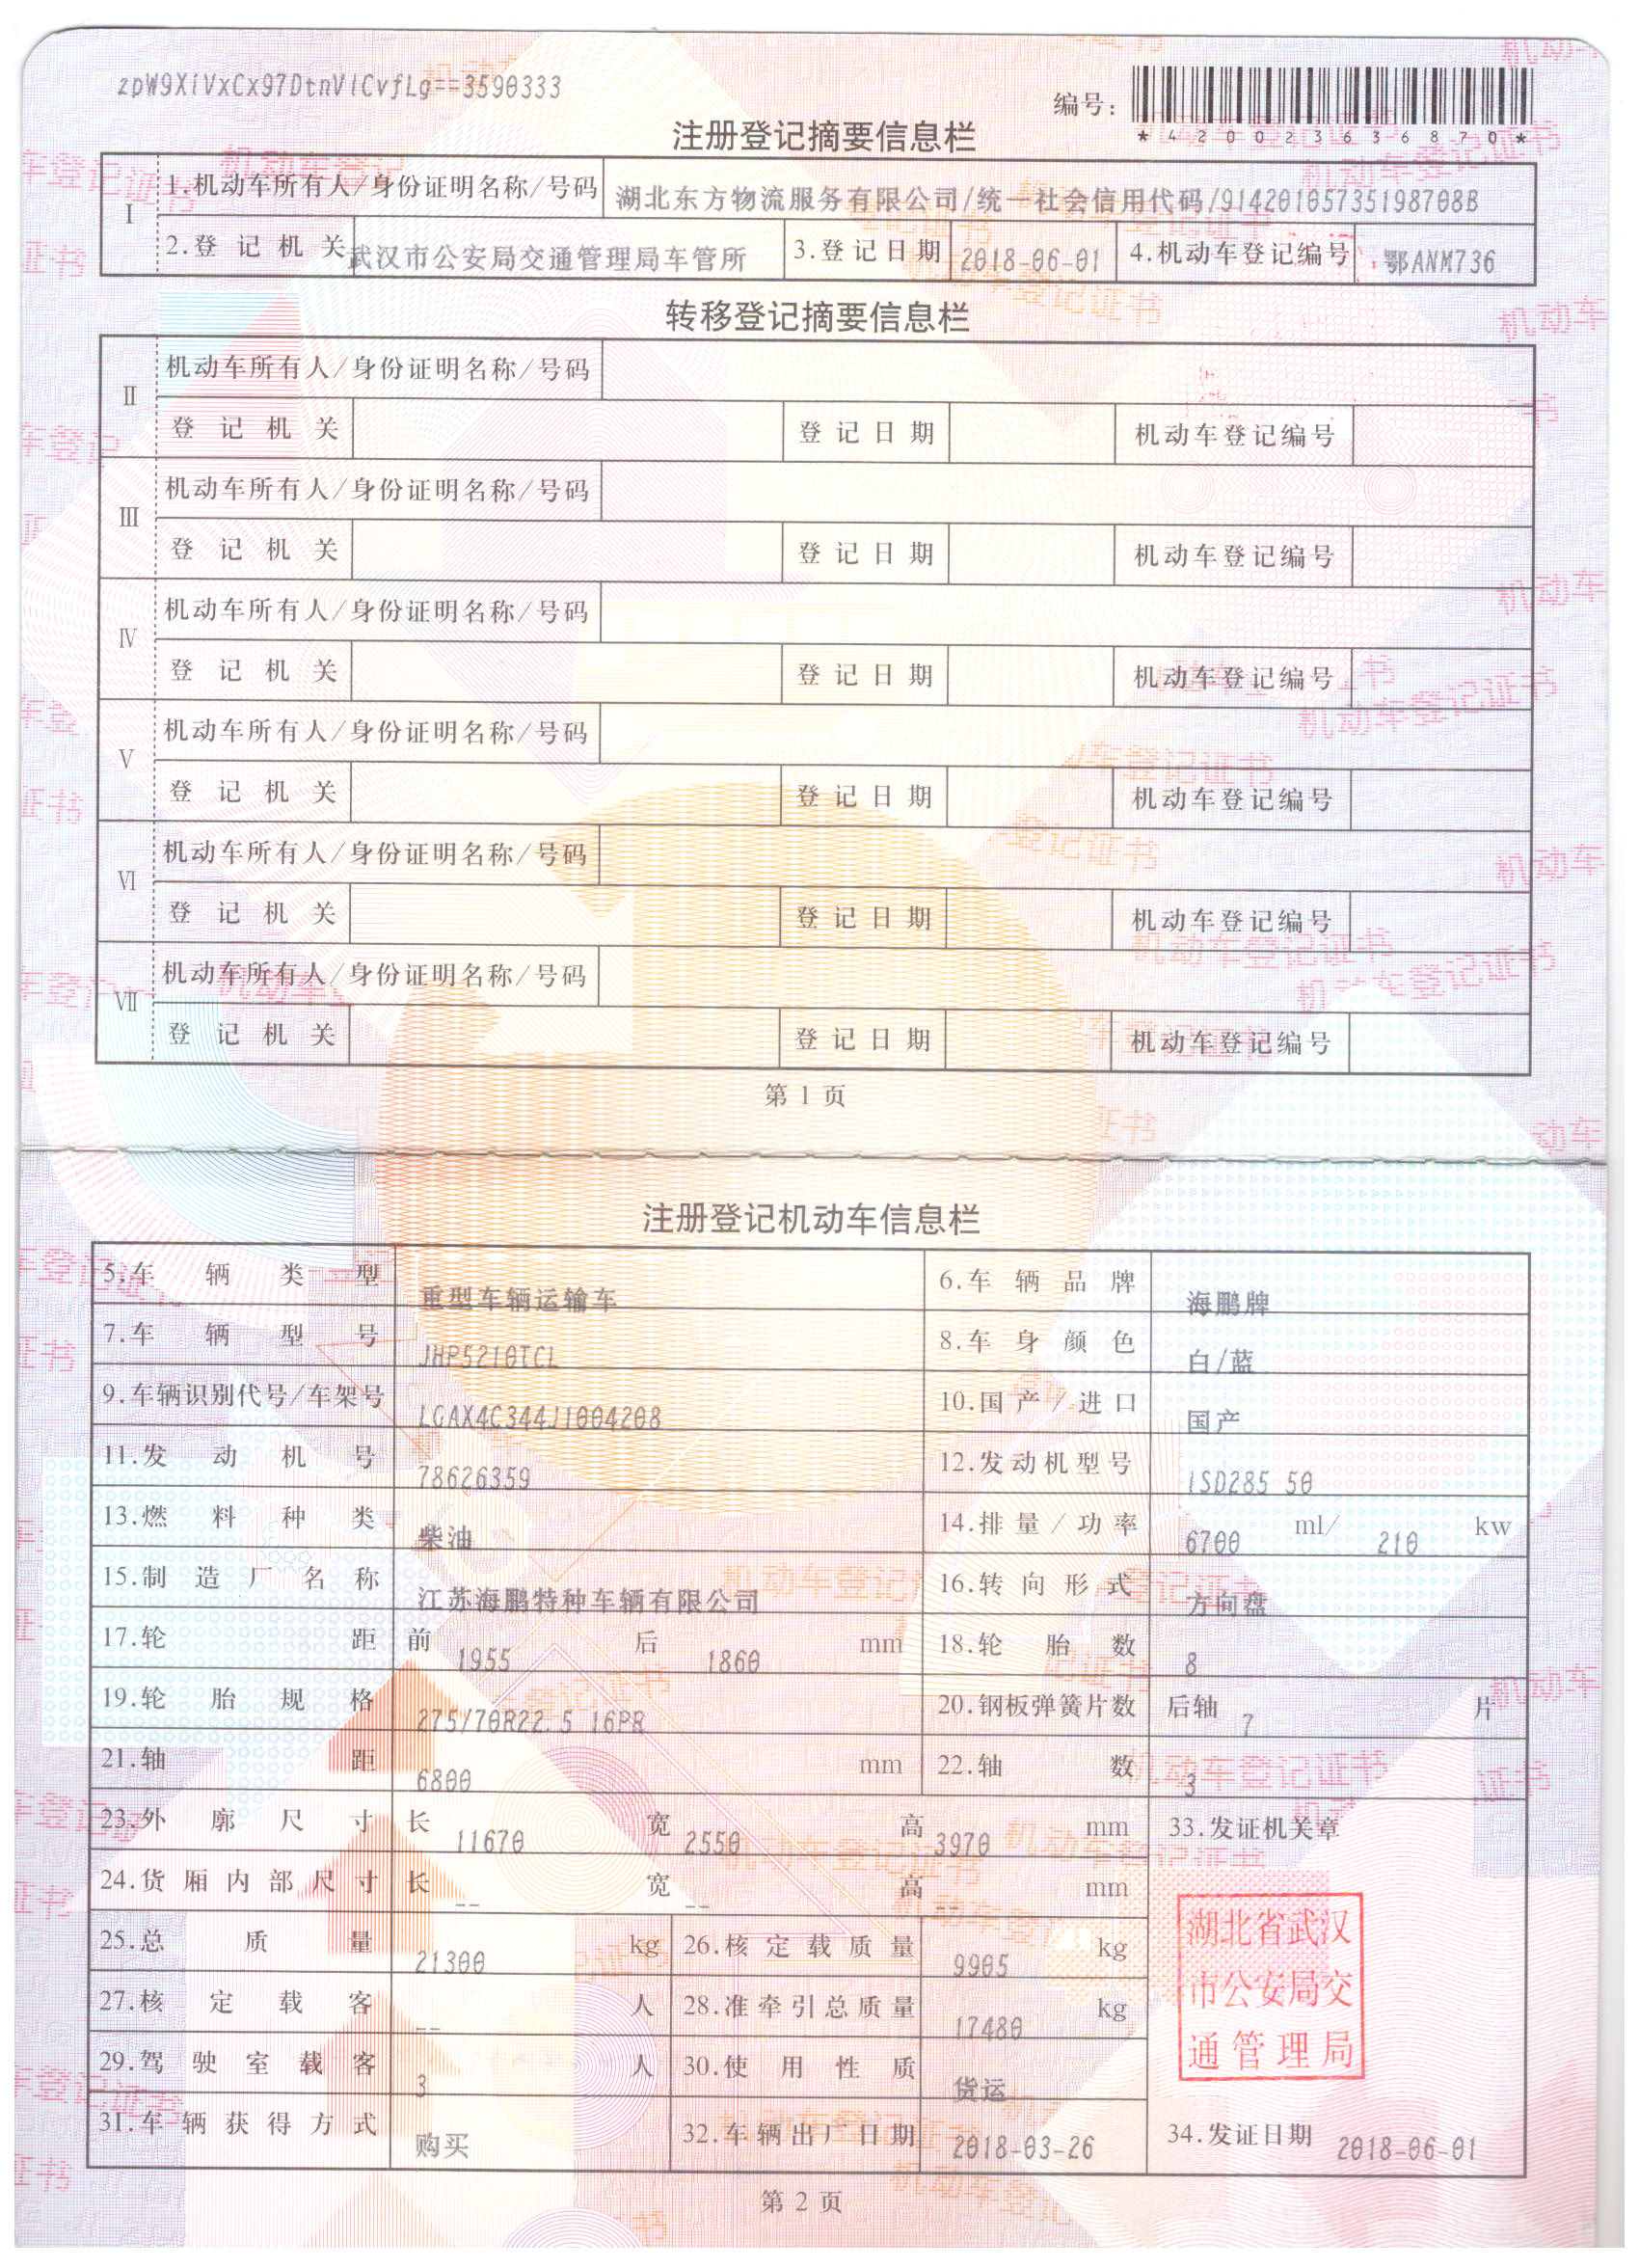 zpW9XiVxCx97DtnVlCvfLg==3590333
编号: *420023636870*
注册登记摘要信息栏
I 1.机动车所有人/身份证明名称/号码 湖北东方物流服务有限公司/统一社会信用代码/91420105735198708B
2.登记机关 武汉市公安局交通管理局车管所 3.登记日期 2018-06-01 4.机动车登记编号 鄂ANM736
转移登记摘要信息栏
II 机动车所有人/身份证明名称/号码
登记机关 登记日期 机动车登记编号
III 机动车所有人/身份证明名称/号码
登记机关 登记日期 机动车登记编号
IV 机动车所有人/身份证明名称/号码
登记机关 登记日期 机动车登记编号
V 机动车所有人/身份证明名称/号码
登记机关 登记日期 机动车登记编号
VI 机动车所有人/身份证明名称/号码
登记机关 登记日期 机动车登记编号
VII 机动车所有人/身份证明名称/号码
登记机关 登记日期 机动车登记编号
第 1 页
注册登记机动车信息栏
5.车辆类型 重型车辆运输车 6.车辆品牌 海鹏牌
7.车辆型号 JHP5210TCL 8.车身颜色 白/蓝
9.车辆识别代号/车架号 LGAX4C344J1004208 10.国产/进口 国产
11.发动机号 78626359 12.发动机型号 ISD285 50
13.燃料种类 柴油 14.排量/功率 6700 ml/ 210 kw
15.制造厂名称 江苏海鹏特种车辆有限公司 16.转向形式 方向盘
17.轮距 前 1955 后 1860 mm 18.轮胎数 8
19.轮胎规格 275/70R22.5 16PR 20.钢板弹簧片数 后轴 7 片
21.轴距 6800 mm 22.轴数 3
23.外廓尺寸 长 11670 宽 2550 高 3970 mm 33.发证机关章
24.货厢内部尺寸 长 -- 宽 -- 高 -- mm
25.总质量 21300 kg 26.核定载质量 9905 kg
27.核定载客 -- 人 28.准牵引总质量 17480 kg
29.驾驶室载客 3 人 30.使用性质 货运
湖北省武汉
市公安局交
通管理局
31.车辆获得方式 购买 32.车辆出厂日期 2018-03-26 34.发证日期 2018-06-01
第 2 页